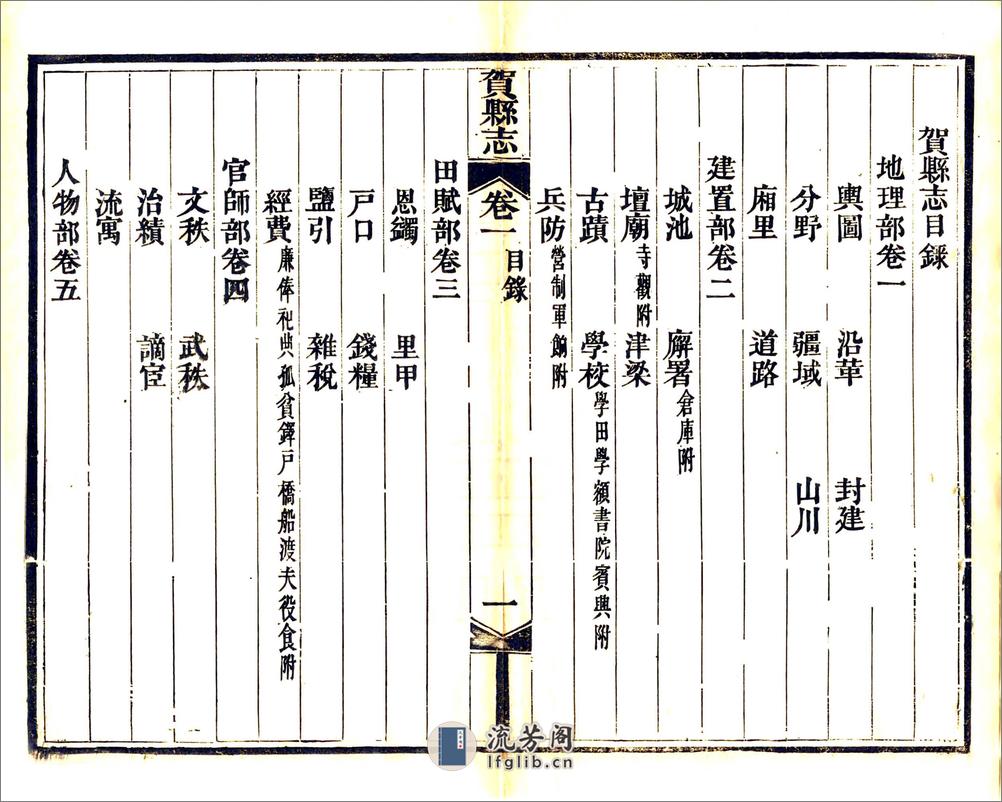 賀縣志目錄
地理部卷一
輿圖 沿革 封建
分野 疆域 山川
廂里 道路
建置部卷二
城池 廨署倉庫附
壇廟寺觀附 津梁
古蹟 學校學田學額書院賓興附
兵防營制軍餉附
賀縣志 卷一 目錄 一
田賦部卷三
恩蠲 里甲
戶口 錢糧
鹽引 雜稅
經費廉俸祀典孤貧鐸戶橋船渡夫役食附
官師部卷四
文秩 武秩
治績 謫宦
流寓
人物部卷五
流芳阁
lfglib.cn